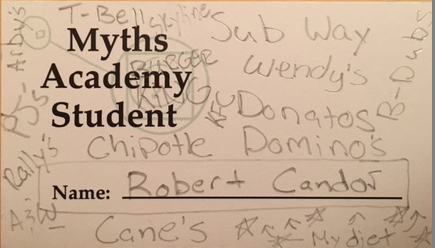 T-Bell skyline
Sub Way
Arby's
Myths
Academy
Student
BURGER
KING
Wendy's
B-Dubs
PJs
KFC
Donatos
Chipotle Domino's
Rally's
Name: Robert Candor
A&W
Cane's
My diet